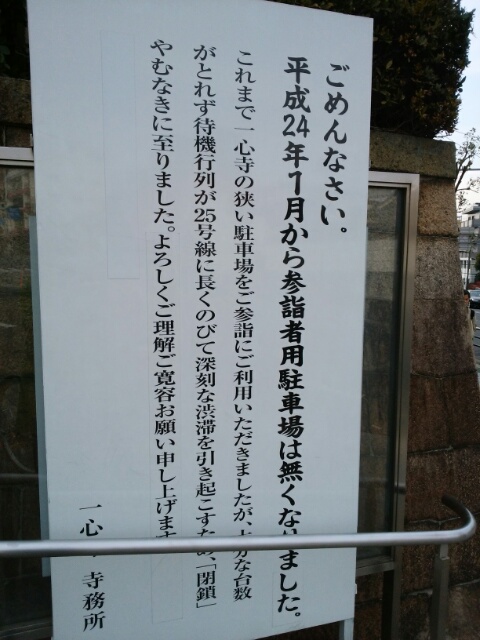 ごめんなさい。
平成24年1月から参詣者用駐車場は無くなりました。
これまで一心寺の狭い駐車場をご参詣にご利用いただきましたが、十分な台数
がとれず待機行列が25号線に長くのびて深刻な渋滞を引き起こすため、「閉鎖」
やむなきに至りました。よろしくご理解ご寛容お願い申し上げます
一心 寺務所